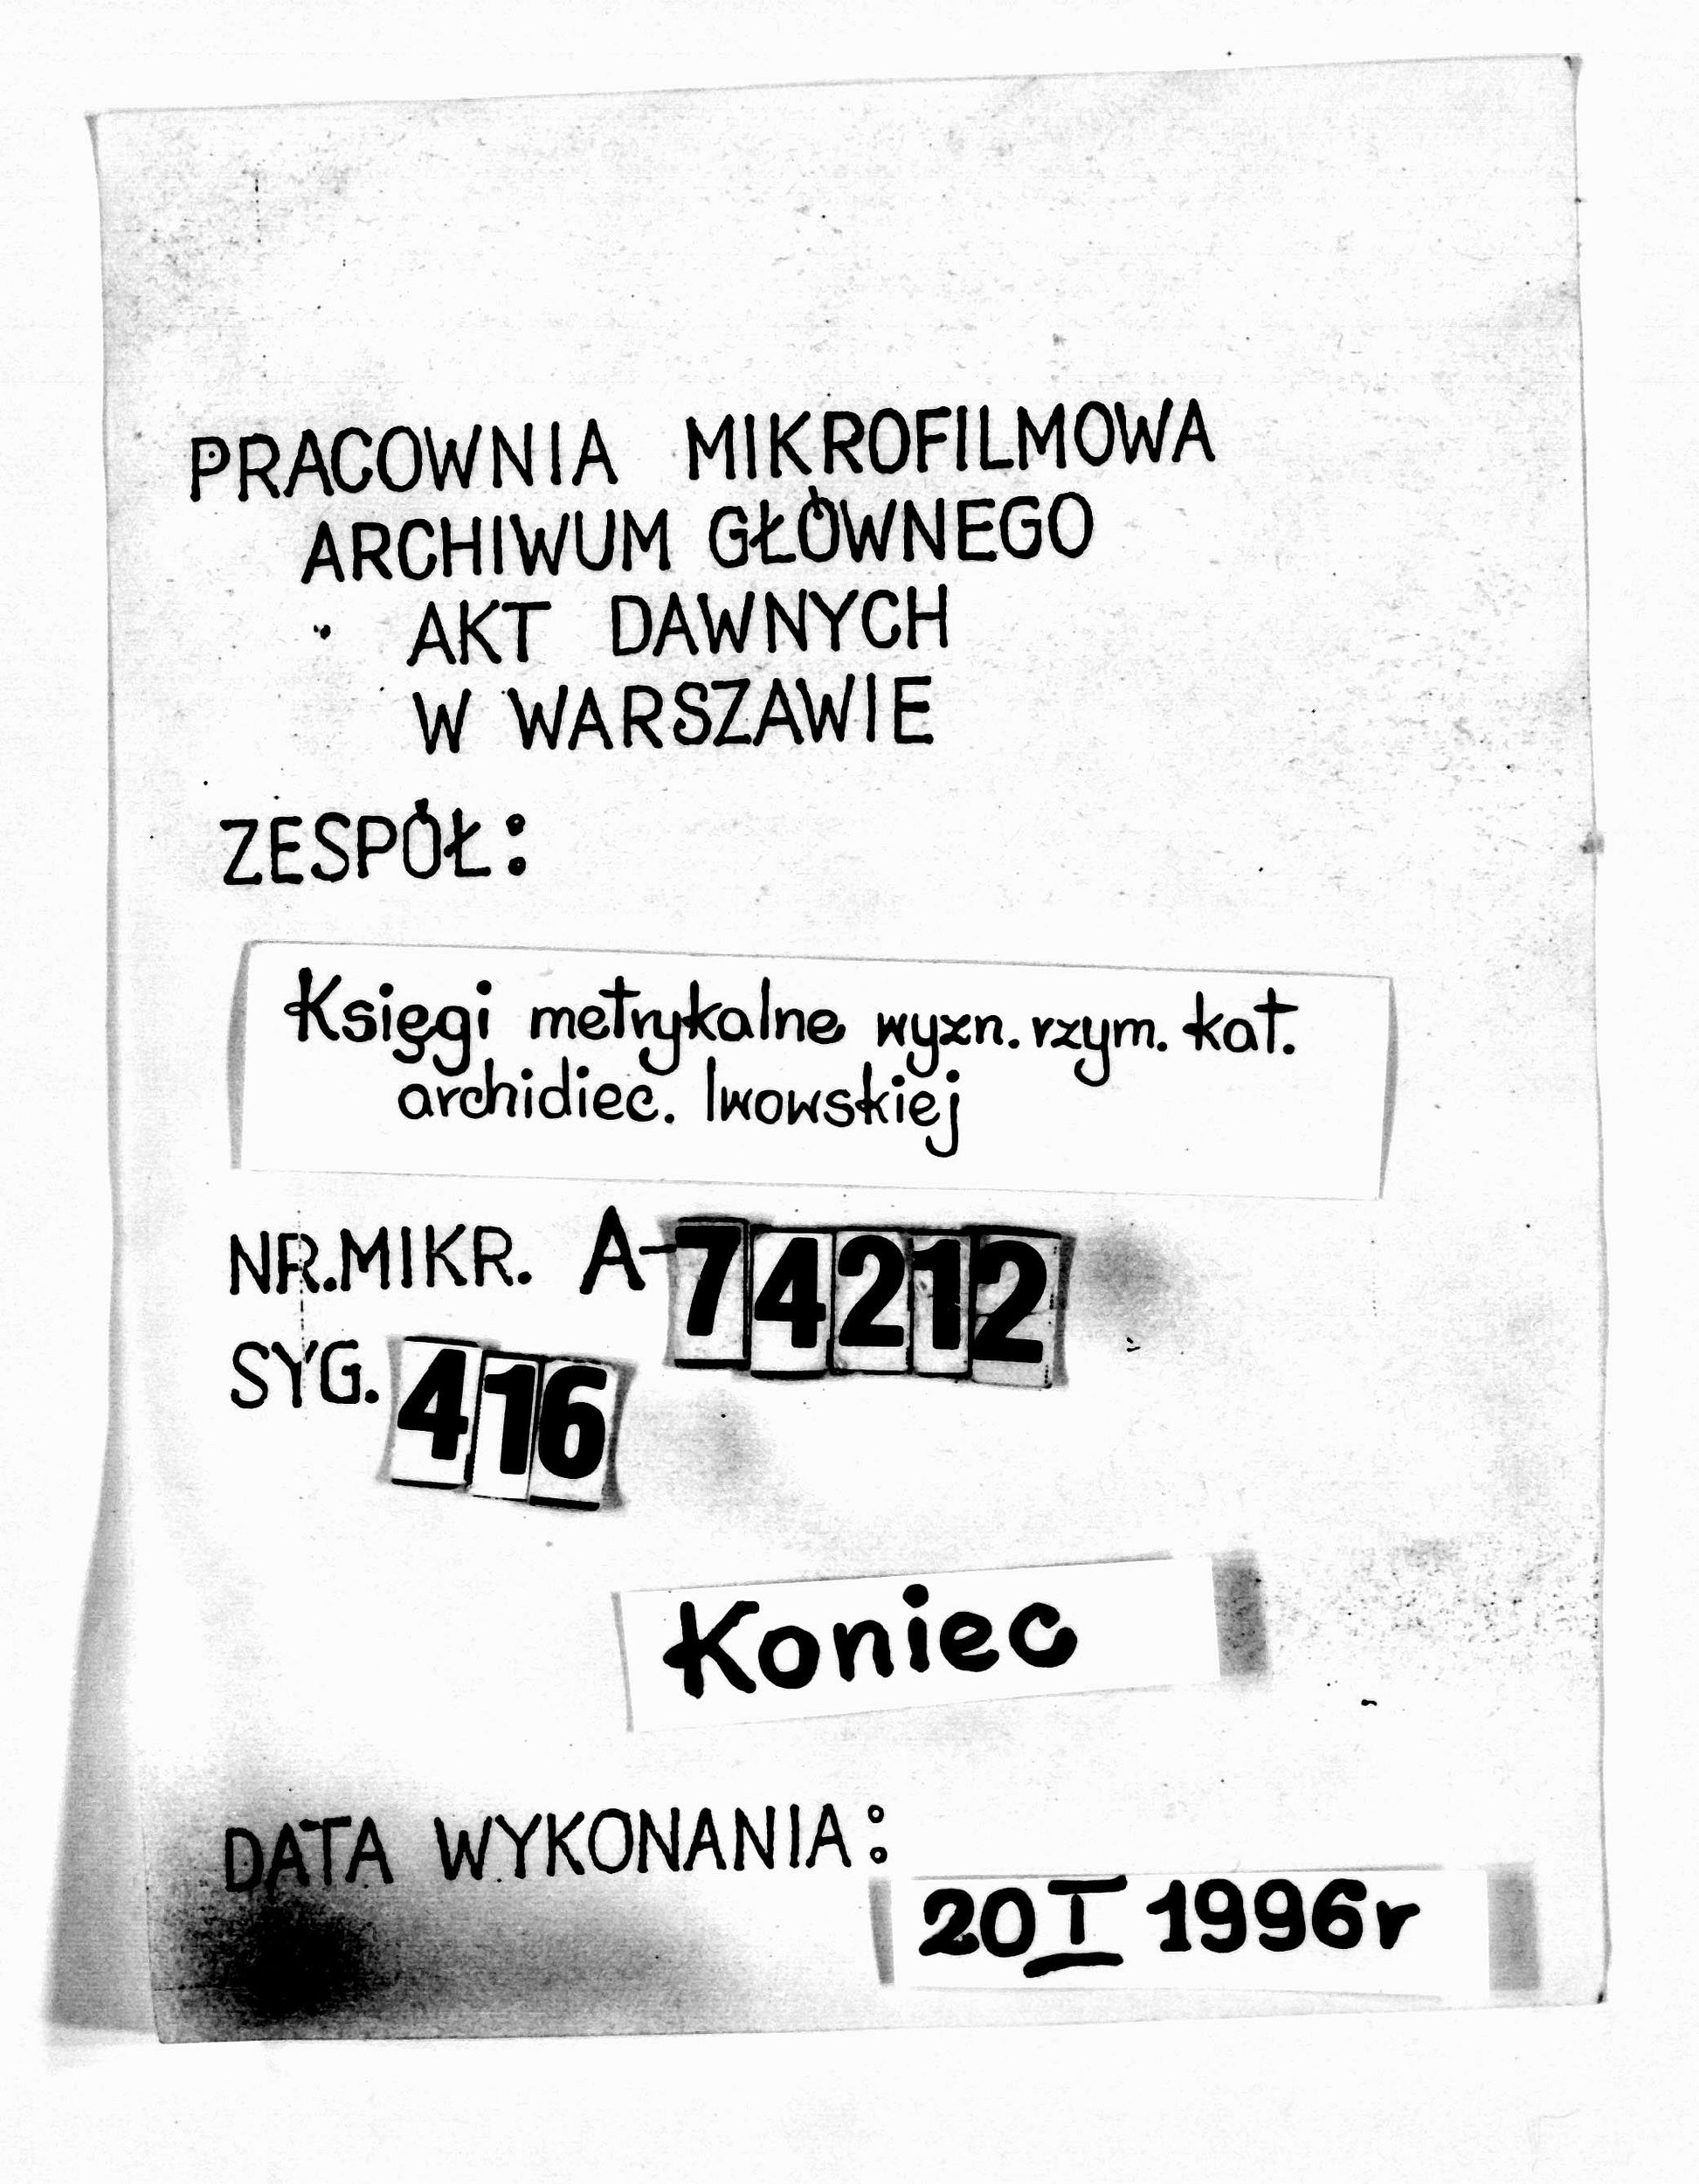 PRACOWNIA MIKROFILMOWA
ARCHIWUM GŁÓWNEGO
AKT DAWNYCH
W WARSZAWIE
ZESPÓŁ:
Księgi metrykalne wyzn. rzym. kat.
archidiec. lwowskiej
NR. MIKR. A-74212
SYG. 416
Koniec
DATA WYKONANIA:
20 I 1996 r